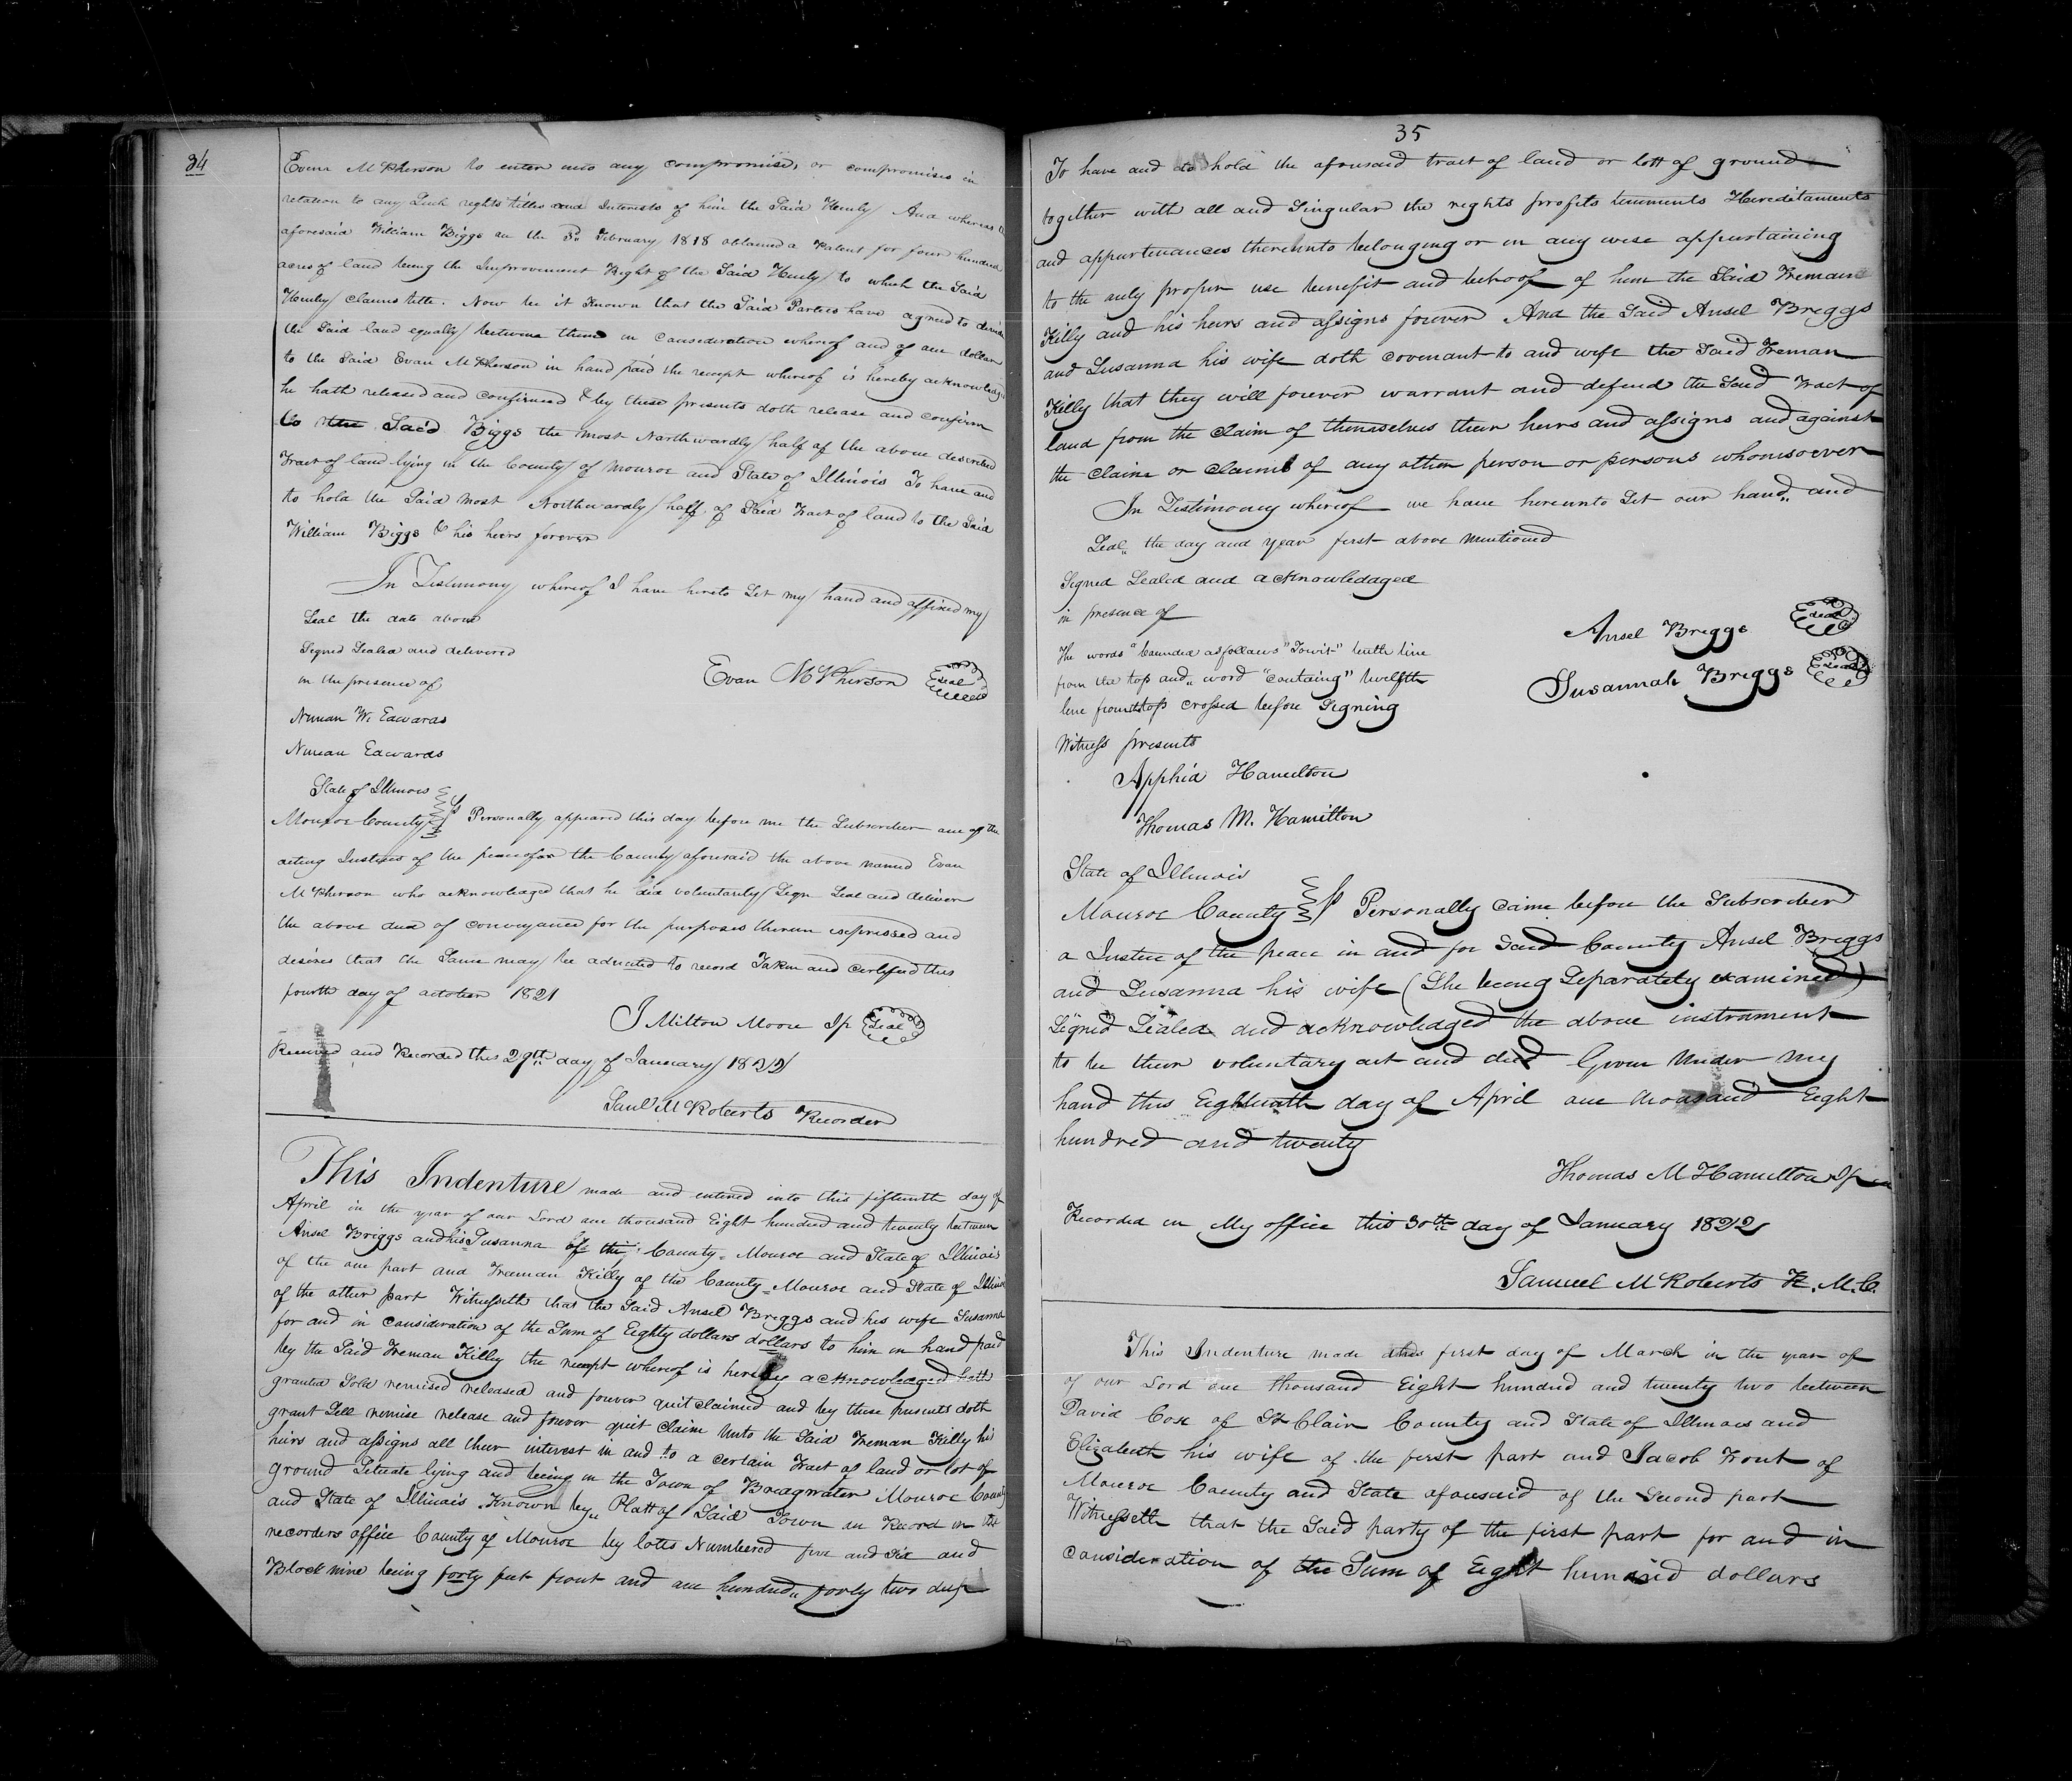 34
Evan McPherson to enter into any compromise, or compromises in
relation to any Such rights titles and Interests of him the Said Henly And whereas
aforesaid William Biggs on the 3rd February 1818 obtained a Patent for four hundred
acres of land being the Improvement Right of the Said Henly to which the Said
Henly claims title. Now be it Known that the Said Parties have agreed to divide
the Said land equally between them in Consideration whereof and of one dollar
to the Said Evan McPherson in hand paid the recept whereof is hereby acknowledged
he hath released and confirmed & by these presents doth release and confirm
to the Said Biggs the most Northwardly half of the above described
Tract of land lying in the County of Monroe and State of Illinois To have and
to hold the Said most Northwardly half of Said Tract of land to the Said
William Biggs & his heirs forever
In Testimony whereof I have hereto Set my hand and affixed my
Seal the date above
Signed Sealed and delivered
in the presence of
Evan McPherson Seal
Ninian W. Edwards
Ninian Edwards
State of Illinois
Monroe County Ss Personally appeared this day before me the Subscriber one of the
acting Justices of the peace for the County aforesaid the above named Evan
McPherson who acknowledged that he did voluntarily Sign Seal and deliver
the above deed of conveyance for the purposes therein expressed and
desires that the Same may be admited to record Taken and certified this
fourth day of october 1821
J Milton Moore Jp Seal
Received and Recorded this 29th day of January 1822
Saml McRoberts Recorder
This Indenture made and entered into this fifteenth day of
April in the year of our Lord one thousand Eight hundred and twenty between
Ansel Briggs and his Susanna of the County Monroe and State of Illinois
of the one part and Freman Killy of the County Monroe and State of Illinois
of the other part Witnesseth that the Said Ansel Briggs and his wife Susanna
for and in consideration of the Sum of Eighty dollars dollars to him in hand paid
by the Said Freman Killey the recept whereof is hereby acknowledged hath
granted Sold remised released and forever quit claimed and by these presents doth
grant Sell remise release and forever quit claim Unto the Said Freman Killy his
heirs and assigns all their interest in and to a certain Tract of land or lot of
ground Situate lying and being in the Town of Bridgwater Monroe County
and State of Illinois Known by Platt of Said Town on Record in the
recorders office County of Monroe by lotts Numbered five and Six and
Block nine being forty feet front and one hundred forty two deep
35
To have and to hold the aforesaid tract of land or lott of ground
together with all and Singular the rights profits tenements Hereditaments
and appurtenances thereunto belonging or in any wise appurtaining
to the only proper use benefit and behoof of him the Said Freman
Killy and his heirs and assigns forever And the Said Ansel Briggs
and Susanna his wife doth covenant to and wife the Said Freman
Killy that they will forever warrant and defend the Said Tract of
land from the claim of themselves their heirs and assigns and against
the claim or claims of any other person or persons whomsoever
In Testimony whereof we have hereunto Set our hand and
Seal the day and year first above mentioned
Signed Sealed and acknowledaged
in presence of
Ansel Briggs Seal
The words "bounded as follows" Towit" tenth line
from the top and word "containg" twelfth
Susannah Briggs Seal
line from the top crossed before Signing
Witness presents
Apphia Hamilton
Thomas M. Hamilton
State of Illinois
Monroe County Ss Personally came before the Subscriber
a Justice of the peace in and for Said County Ansel Briggs
and Susanna his wife (She being Separately examined)
Signed Sealed and acknowledaged the above instrument
to be their voluntary act and deed Given Under my
hand this Eighteenth day of April one thousand Eight
hundred and twenty
Thomas M Hamilton Jp
Recorded in My office this 30th day of January 1822
Samuel McRoberts R. M. C.
This Indenture made this first day of March in the year of
of our Lord one thousand Eight hundred and twenty two between
David Cox of St Clair County and State of Illinois and
Elizabeth his wife of the first part and Jacob Trout of
Monroe County and State aforesaid of the Second part
Witnesseth that the Said party of the first part for and in
consideration of the Sum of Eight hundred dollars